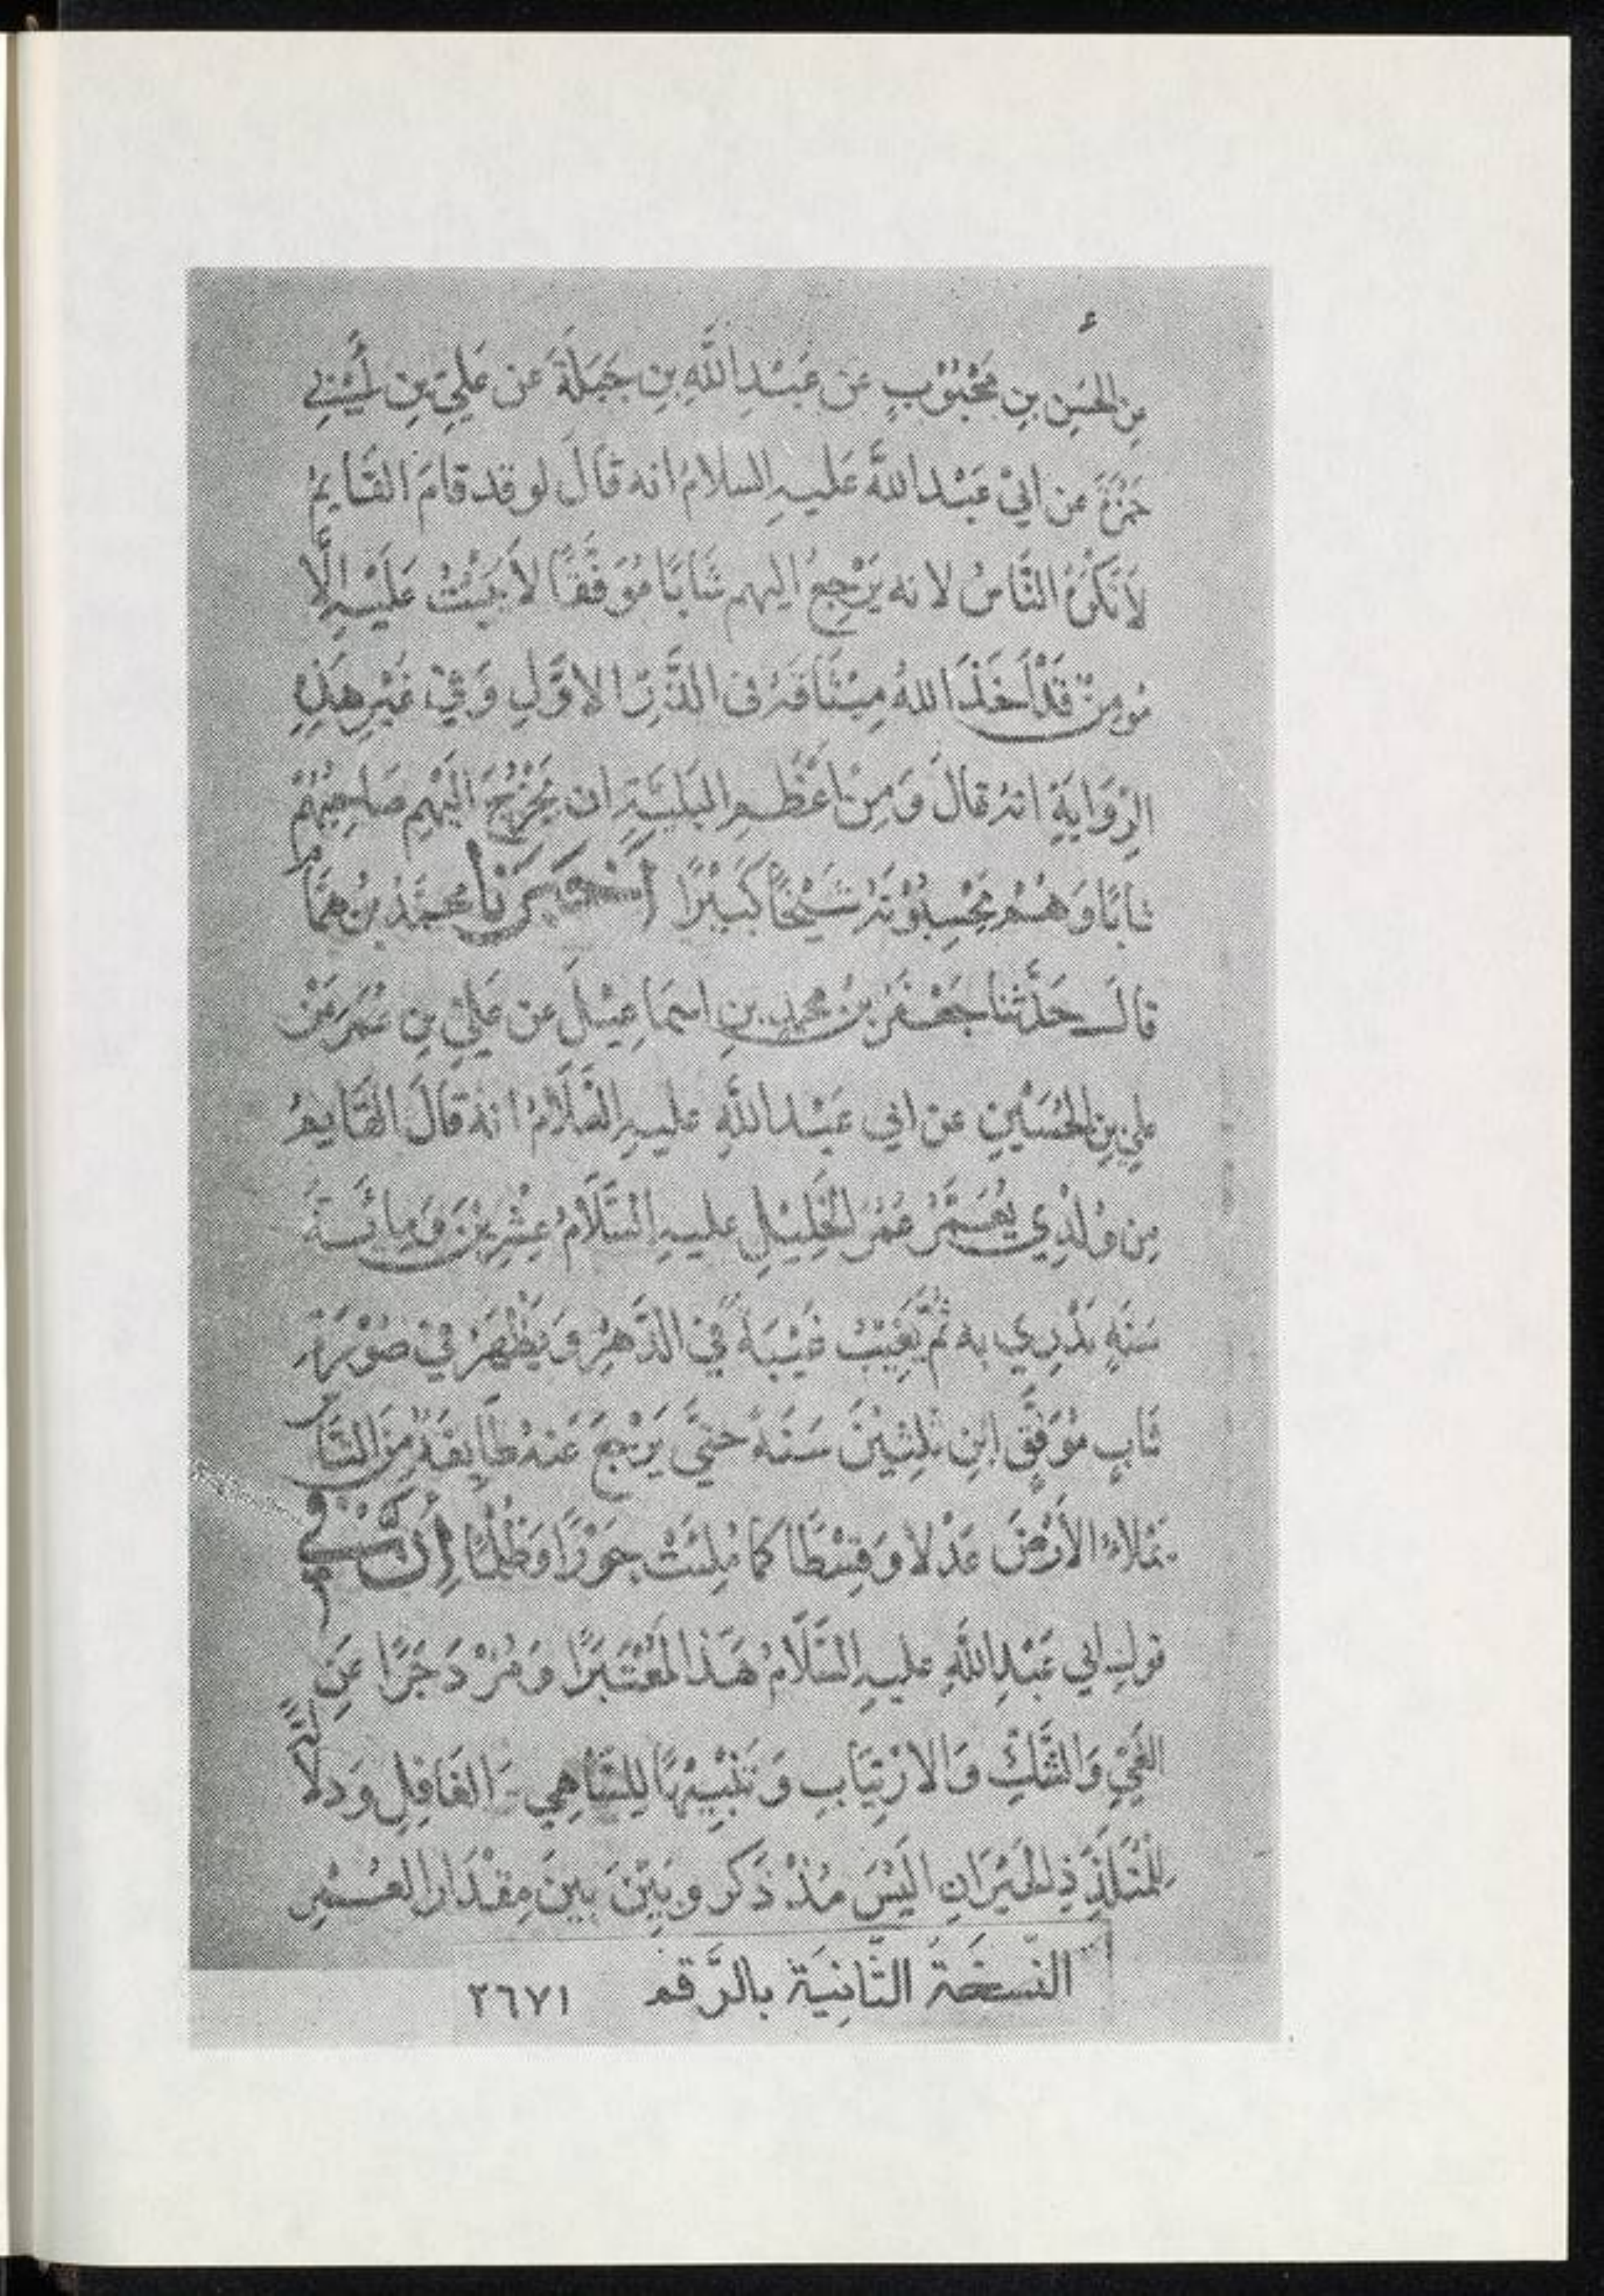 عن الحَسَنِ بنِ مَحْبُوْبٍ عَن عَبْدِ اللَّهِ بنِ جَبَلَةَ عَن عَلِيِّ بنِ أَبِي
حَمْزَةَ عن ابيْ عَبْد اللَّه عَليهِ السلامُ انه قَالَ لو قد قامَ القَايمُ
لأَنكَرَهُ النَّاسُ لانه يَرْجعُ اليهم شَابًا مُوَفَّقًا لاَ يَثبُتُ عَلَيْهِ إلَّا
مُومِنٌ قَدْ أَخَذَ اللهُ مِيْثَاقَهُ فى الذَّرِّ الاوَّلِ وَفيْ غَيْرِ هَذِهِ
الرِّوَايَةِ انهُ قالَ وَمِنْ اَعْظَمِ البَلِيَّةِ ان يَخْرُجَ اِلَيْهِم صَاحِبُهُمْ
شابًا وَهُمْ يَحْسِبُوْنَهُ شَيْخًا كَبِيْرًا أَخْبَرَنَا مُحَمَّدُ بنُ هَمَّام
قالَ حَدَّثنا جَعْفَرُ بنُ مُحَمدِ بنِ اسمَاعِيْلَ عن عَلِيِّ بنِ عُمَرَ عَنْ
عليِ بنِ الحُسَيْنِ عن ابي عَبْد اللَّهِ عليهِ السَّلَامُ انهُ قَالَ القَايمُ
مِن وُلْدِي يُعَمَّرُ عُمْرَ الخَلِيْلِ عليهِ السَّلَامُ عِشْرِيْنَ وَمِائَةَ
سَنَةٍ يُدْرِي به ثُمَّ يَغِيْبُ غَيْبَةً فِي الدَّهْرِ وَيَظْهَرُ فيْ صُوْرَةِ
شَابٍ مُوَفَّقٍ ابْنِ ثلثِيْنَ سَنَةً حتَّي يَرْجِعَ عَنهُ طَايِفَةٌ مِنَ النَّاسِ
يَملاءُ الأَرْضَ عَدْلا وَقِسْطًا كما مُلِئَتْ جَوْرًا وَظُلْمًا إِنَّ فِي
قولِ ابي عَبْدِ اللَّهِ عليهِ السَّلَامُ هَذا لَمُعْتَبَرًا وَمُزْدَجَرًا عَنِ
العَمْيِ وَالشَّكِّ وَالارْتِيَابِ وَتَنْبِيْهًا لِلسَّاهِي الغَافِلِ وَدلَالَةً
لِلْمُتَلَدِّدِ الحَيْرَانِ اَلَيْسَ مُذْ ذَكر وبَيَّنَ بينَ مِقْدَار العُمْرِ
النّسخَةُ الثّانِيَة بالرَّقم ٣٦٧١